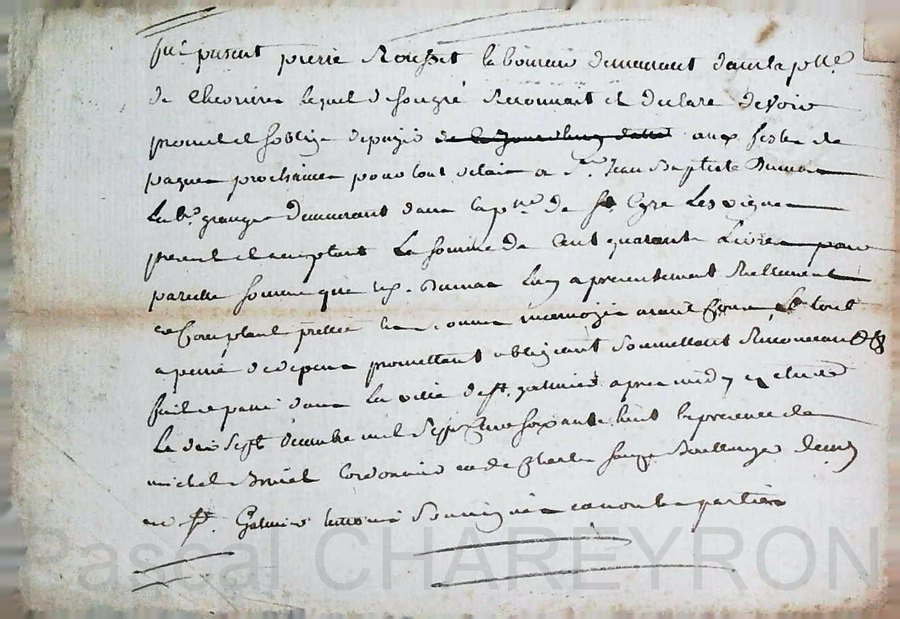 fut present pierre Rousset laboureur demeurant dans la psse
de Chevrieres lequel de son gré Reconnait et declare devoir
promet et soblige de payer aux festes de
paques prochaines pour tout delais a Sr Jean Baptiste Dumas
demeurant dans la psse de St Cyre Les Vignes
present et acceptant La somme de Cent quarante Livres pour
pareille somme que led. Dumas luy a presentement Reellement
et Comptant prettée avant Ce tout
a peine de depens promettant obligeant Soumettant Renonceant &
fait et passé dans La ville de St. galmier apres midy
Le dix Sept decembre mil Sept Cent soixante huit en presence de
michel Cordonnier et de Charles Boullanger demt
en St. Galmier temoins Soussignés et non les parties
Pascal CHAREYRON